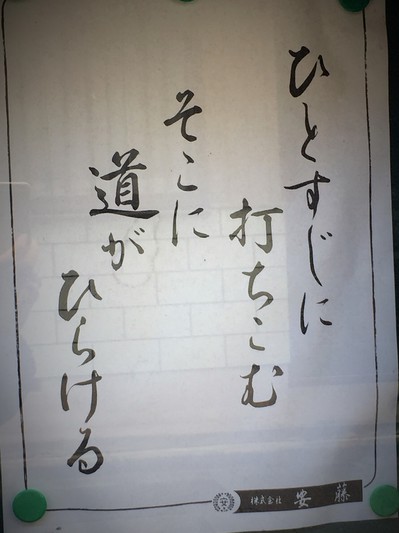 ひとすじに
打ちこむ
そこに
道が
ひらける
安
株式会社 安藤